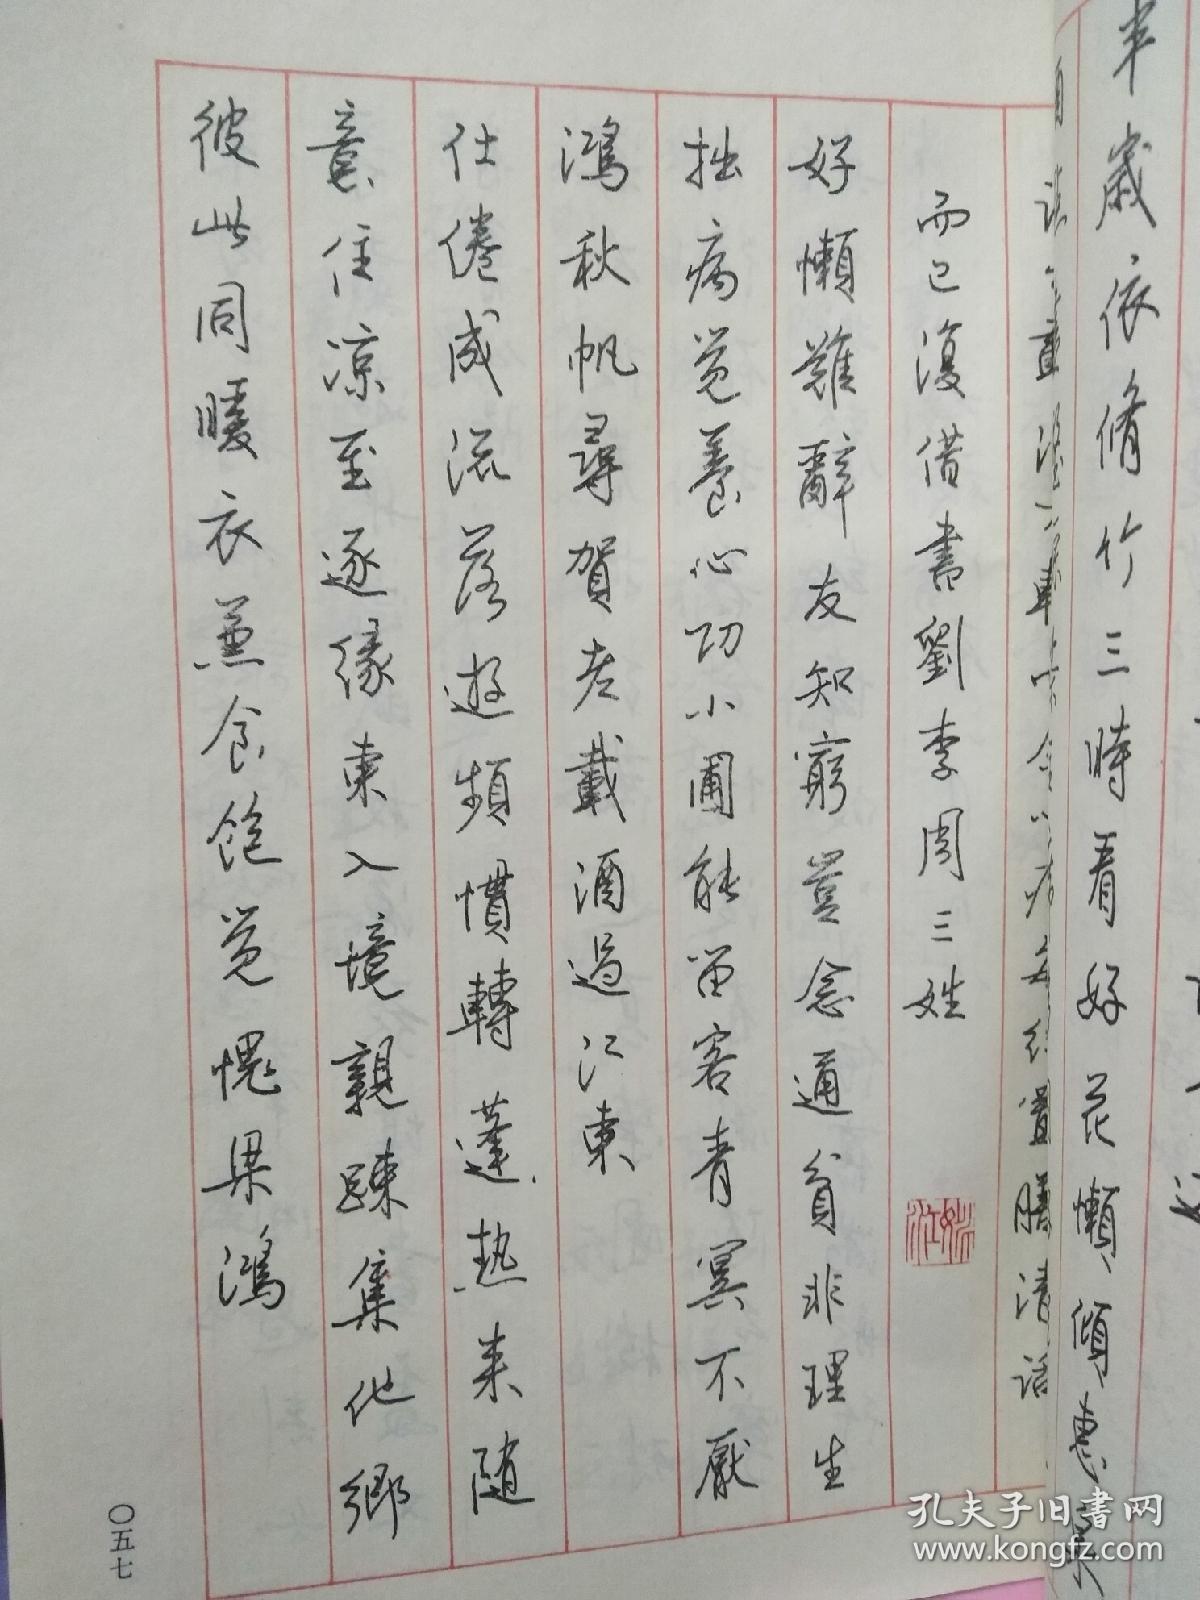 半歲依脩竹三時看好花懶傾惠泉
置膳清話
而已復借書劉李周三姓
好懶難辭友知窮豈念通貧非理生
拙病覺養心功小圃能留客青冥不厭
鴻秋帆尋賀老載酒過江東
仕倦成流落遊頻慣轉蓬熱來隨
意住涼至逐緣東入境親疎集他鄉
彼此同暖衣兼食飽覺愧梁鴻
〇五七
孔夫子旧書网
www.kongfz.com